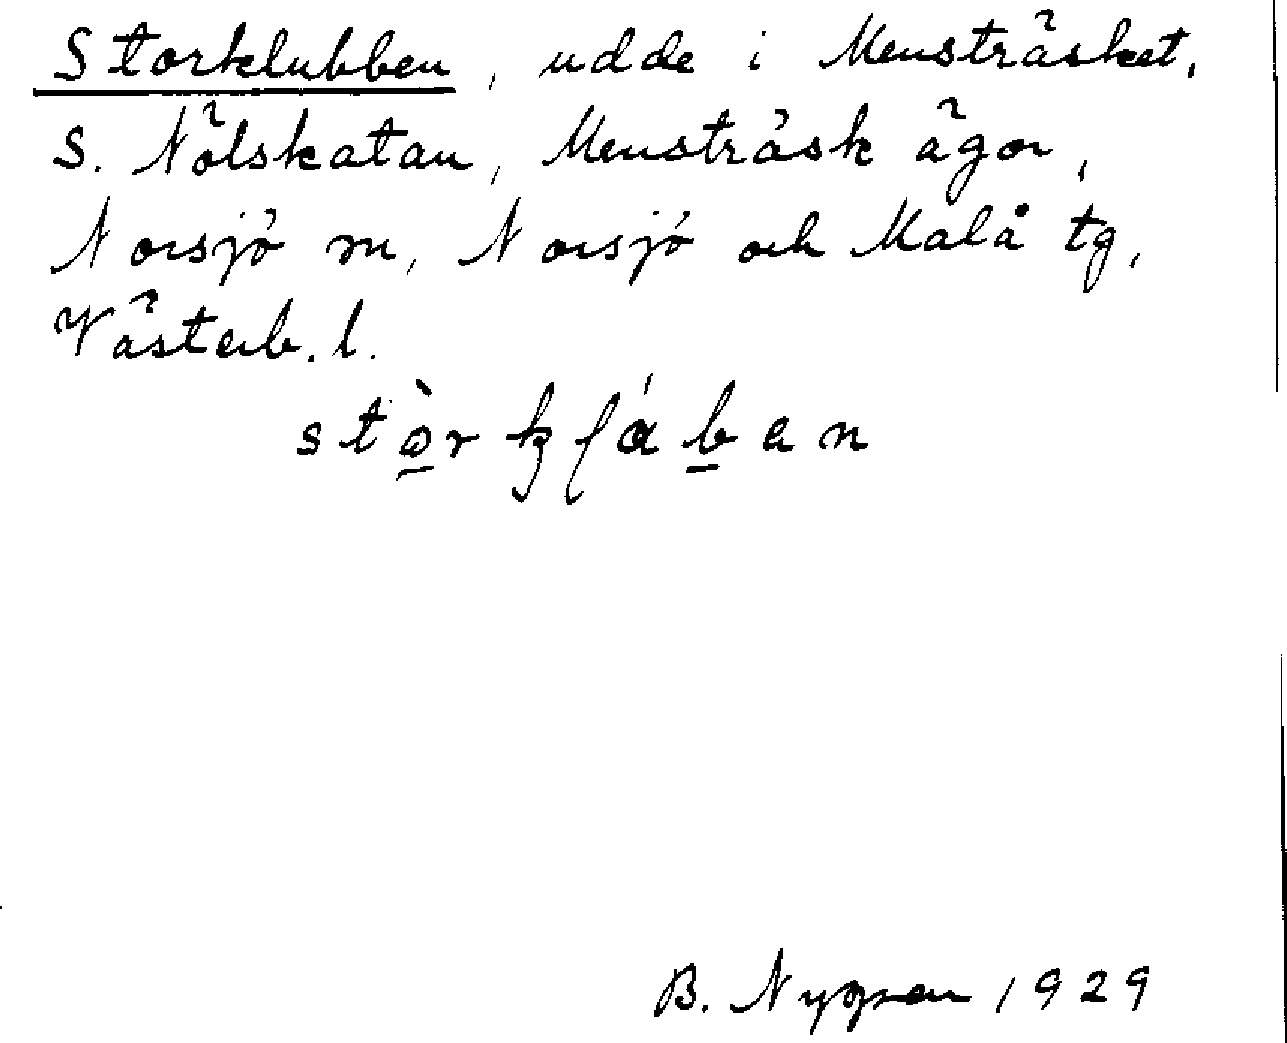 Storklubben, udde i Mensträsket,
S. Nölskatan, Mensträsk ägor,
Norsjö sn, Norsjö och Malå tg,
Västerb. l.
B. Nygren 1929